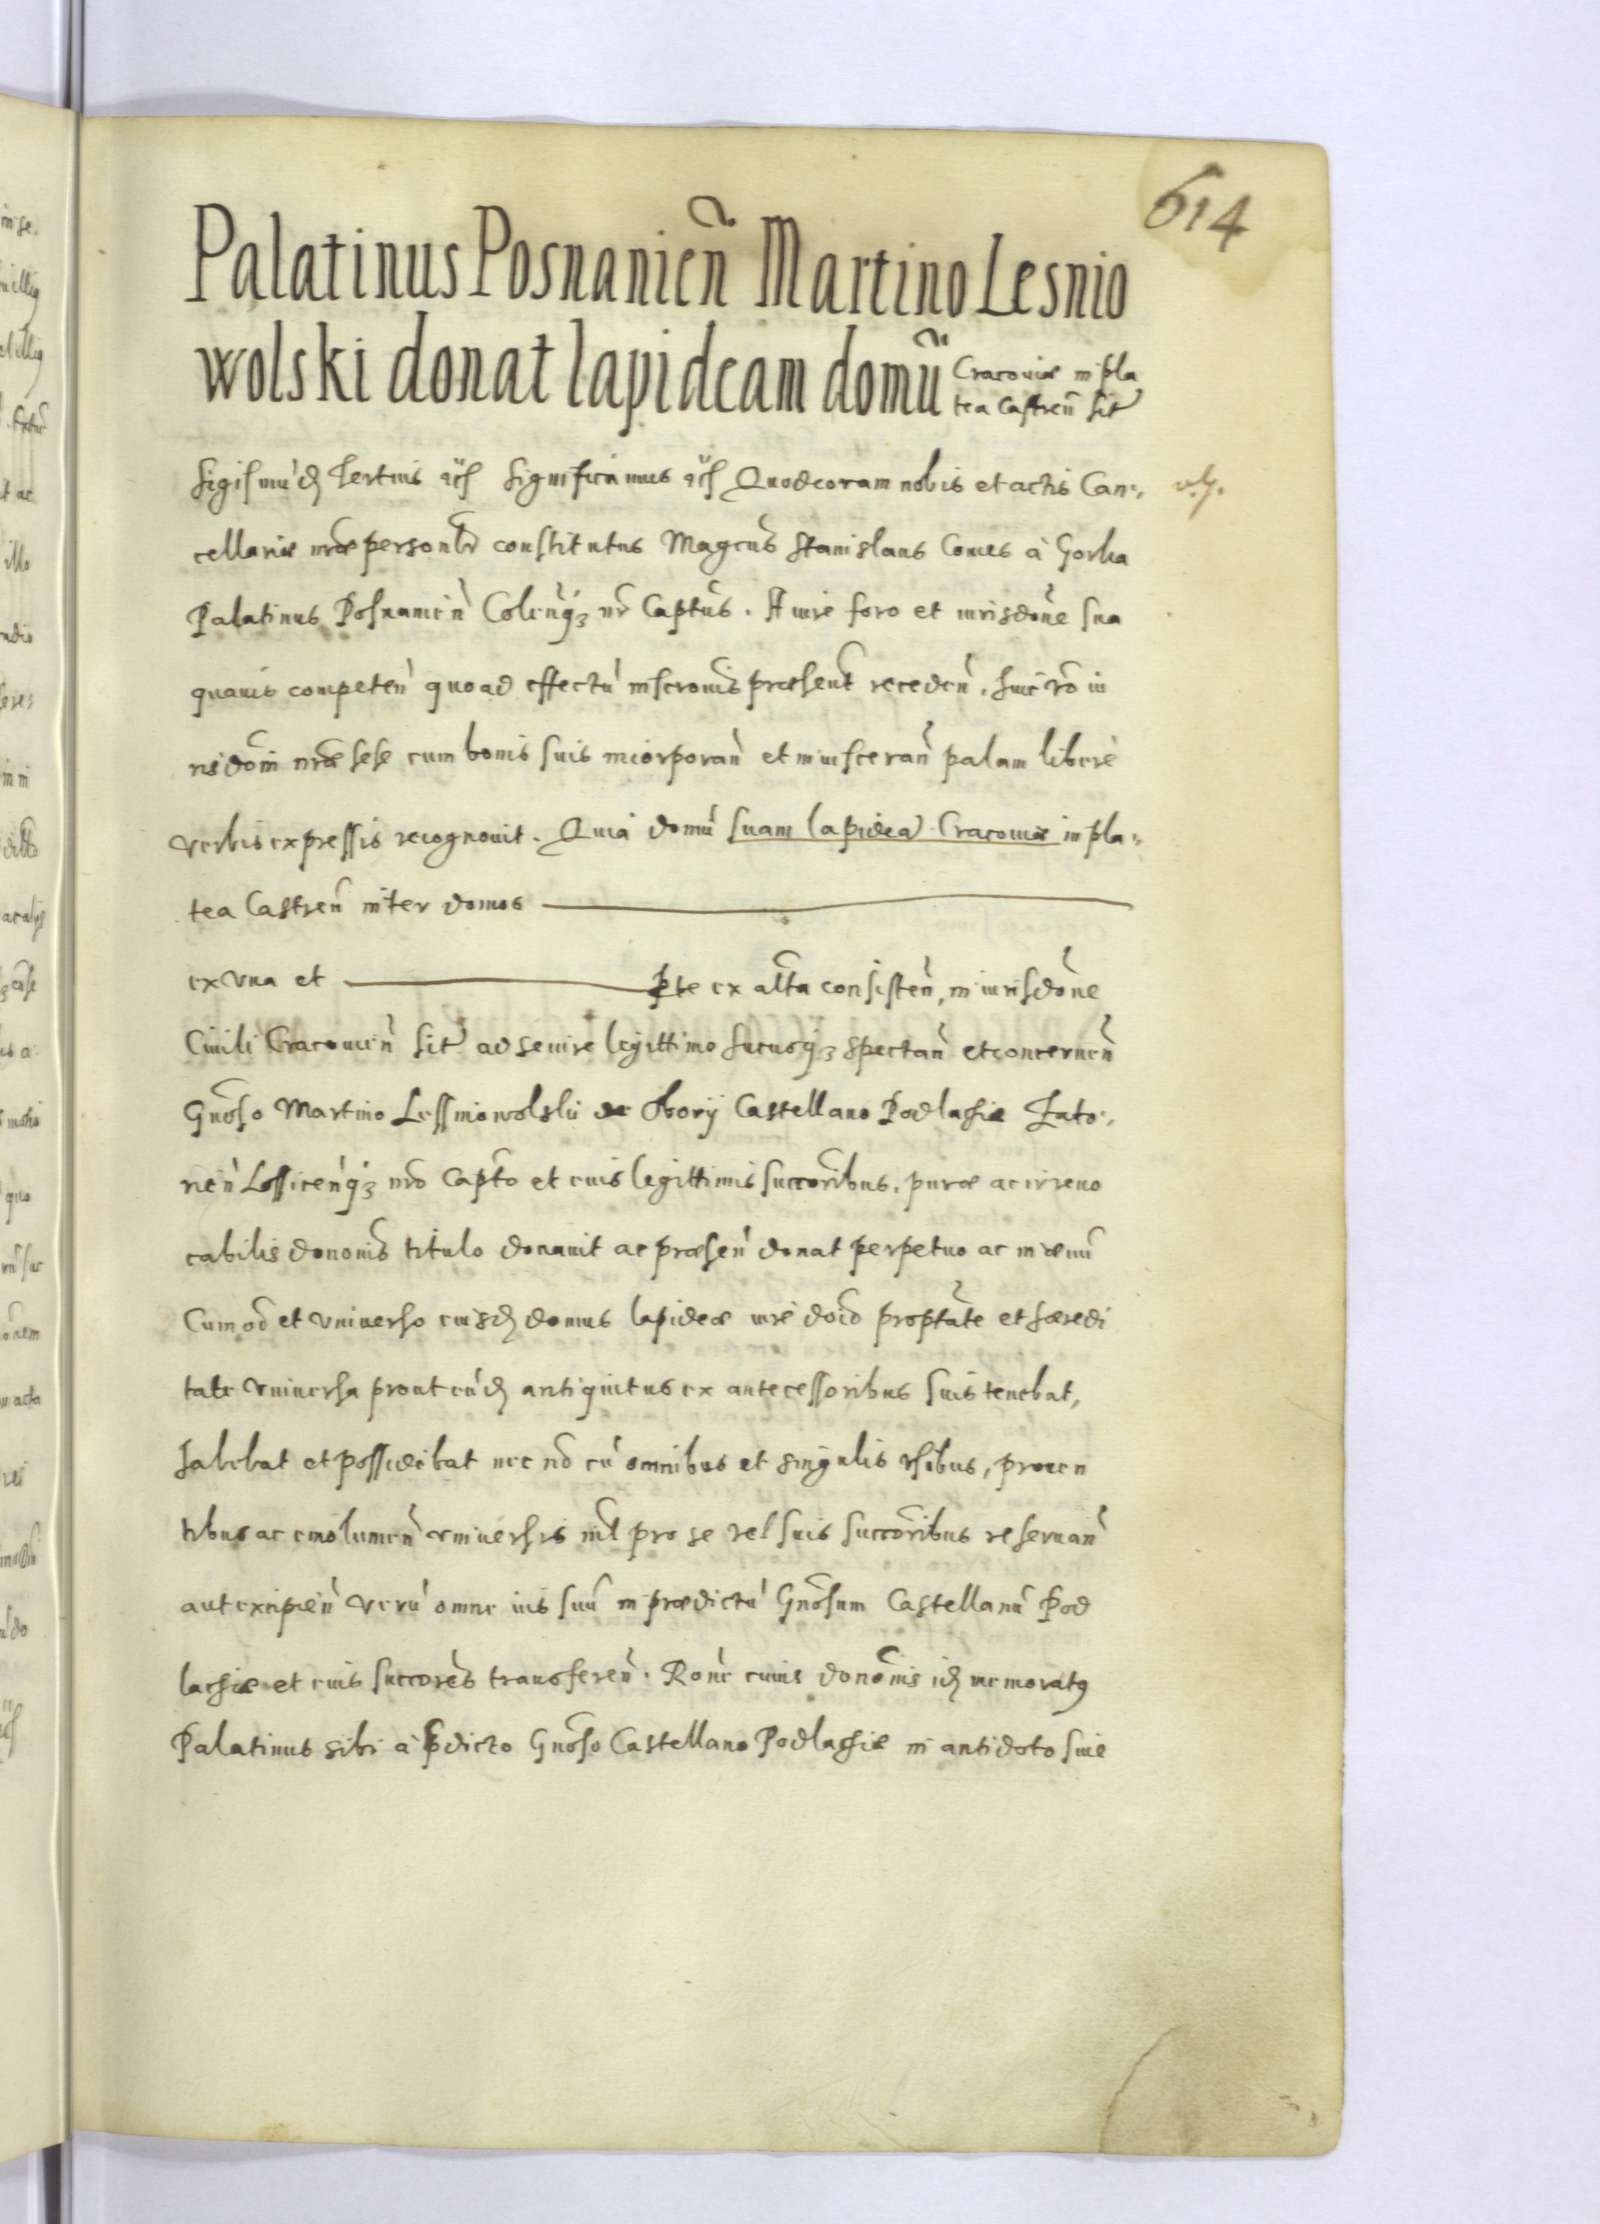 614
Palatinus Posnanień Martino Lesnio
wolski donat lapideam domū Cracoviæ in pla
tea Castreń sit
Sigismūdꝫ Tertius &c̈ Significamus &c̈ Quod coram nobis et actis Can-
cellariæ nr̄æ personlr̄ constitutus Magcūs Stanislaus Comes à Gorka
Palatinus Posnanień Coleńqꝫ nr̄ Captūs. A iure foro et iurisdōne sua
quavis competeń quoad effectū inscronīs præsent̄ recedeń, huic v̄o iu
risdōni nr̄æ sese cum bonis suis incorporań et inviscerań palam liberè
verbis expressis recognovit. Quia domū suam lapideā Cracoviæ in pla-
tea Castreń inter domos
ex una et ꝑte ex altā consisteń, in iurisdōne
Civili Cracovień sit̄ ad se iure legittimo sucusqꝫ spectań et concerneń
Gnōso Martino Lessniowolski de Obory Castellano Podlachiæ
Lossiceńqꝫ nr̄o Captō et eius legittimis succorībus, puræ ac irrevo
cabilis dononīs titulo donavit ac præseń donat perpetuo ac in ævū
Cum oī et universo eiusdꝫ domus lapideæ iure doīo proptāte et hæredi
tate universa prout eādꝫ antiquitus ex antecessoribus suis tenebat,
habebat et possidebat nec nō cū omnibus et singulis usibus, proven
tibus ac emolumeń universis nīl pro se vel suis succorībus reservań
aut excipień verū omne ius suū in prædictū Gnōsum Castellanū Pod
lachiæ et eius succorēs transfereń. Ronē cuius donōnis idꝫ memoratꝯ
Palatinus sibi à ꝑdicto Gnōso Castellano Podlachiæ in antidoto sive